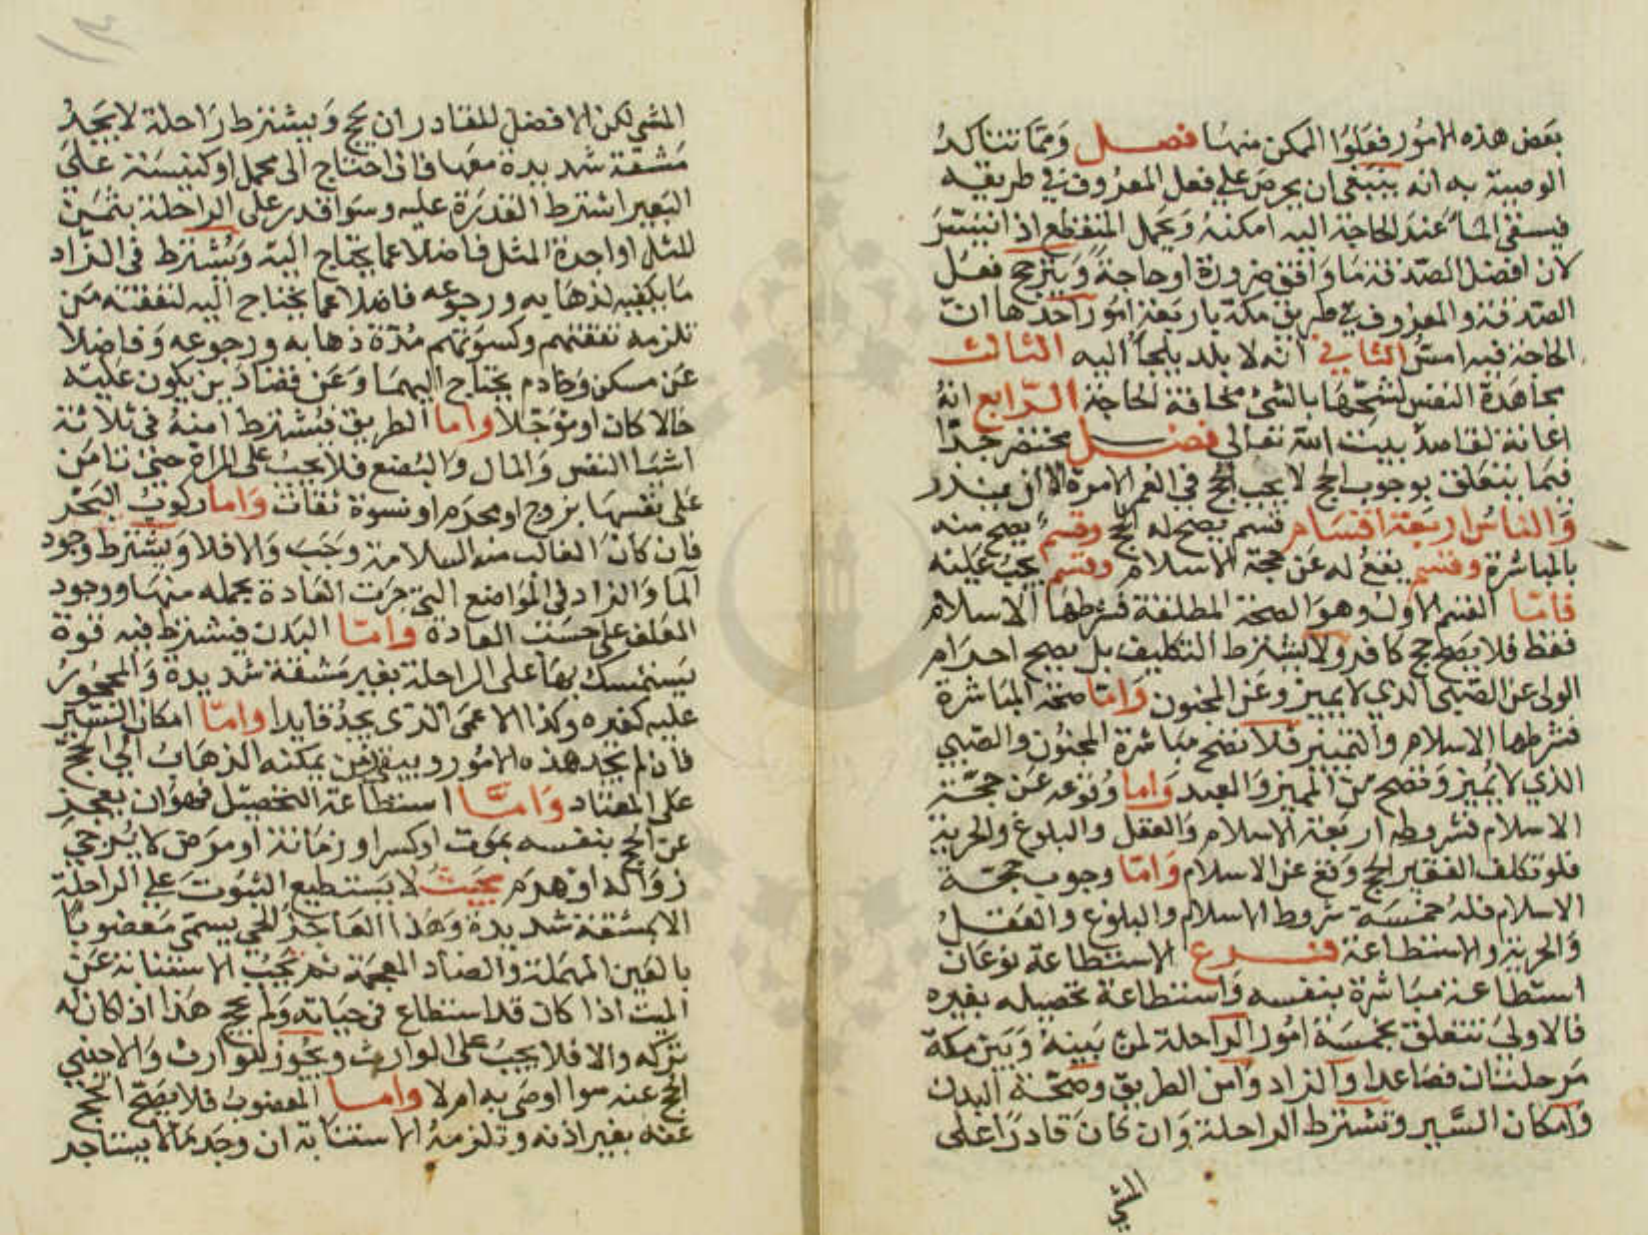 بعض هذه الامور فعلوا الممكن منها فصل ومما تتاكد
الوصية به انه ينبغي ان يحرص على فعل المعروف في طريقه
فيسقي الماء عند الحاجة اليه امكنه ويحمل المنقطع اذا تيسر
لان افضل الصدقة ما وافق ضرورة او حاجة ويترجح فعل
الصدقة والمعروف في طريق مكة باربعة امور احدها ان
الحاجة فيه امس الثاني انه لا بلد يلجا اليه الثالث
مجاهدة النفس لشحها بالشئ مخافة الحاجة الرابع انه
اعانة لقاصد بيت الله تعالى فصل مختصر جدا
فيما يتعلق بوجوب الحج لا يجب الحج في العمر الا مرة الا ان ينذر
والناس اربعة اقسام قسم يصح له الحج وقسم يصح منه
بالمباشرة وقسم يقع له عن حجة الاسلام وقسم يجب عليه
فاما القسم الاول وهو الصحة المطلقة فشرطها الاسلام
فقط فلا يصح حج كافر ولا يشترط التكليف بل يصح احرام
الولى عن الصبى الذي لا يميز وعن المجنون واما صحة المباشرة
فشرطها الاسلام والتمييز فلا تصح مباشرة المجنون والصبي
الذي لا يميز وتصح من المميز والعبد واما وقوعه عن حجة
الاسلام فشروطه اربعة الاسلام والعقل والبلوغ والحرية
فلو تكلف الفقير الحج وقع عن الاسلام واما وجوب حجة
الاسلام فله خمسة شروط الاسلام والبلوغ والعقل
والحرية والاستطاعة فرع الاستطاعة نوعان
استطاعة مباشرة بنفسه واستطاعة تحصيله بغيره
فالاولى تتعلق بخمسة امور الراحلة لمن بينه وبين مكة
مرحلتان فصاعدا والزاد وامن الطريق وصحة البدن
وامكان السير وتشترط الراحلة وان كان قادرا على
المشي
المشي لكن الافضل للقادر ان يحج ويشترط راحلة لا يجد
مشقة شديدة معها فان احتاج الى محمل او كنيسة على
البعير اشترط القدرة عليه وسوا قدر على الراحلة بثمن
المثل او اجرة المثل فاضلا عما يحتاج اليه ويشترط في الزاد
ما يكفيه لذهابه ورجوعه فاضلا عما يحتاج اليه لنفقته من
تلزمه نفقتهم وكسوتهم مدة ذهابه ورجوعه وفاضلا
عن مسكن وخادم يحتاج اليهما وعن قضاء دين يكون عليه
حالا كان او مؤجلا واما الطريق فيشترط امنه في ثلاثة
اشيا النفس والمال والبضع فلا يجب على المراة حتى تامن
على نفسها بزوج او محرم او نسوة ثقات واما ركوب البحر
فان كان الغالب منه السلامة وجب والا فلا ويشترط وجود
الما والزاد في المواضع التي جرت العادة بحمله منها ووجود
العلف على حسب العادة واما البدن فيشترط فيه قوة
يستمسك بها على الراحلة بغير مشقة شديدة والمحجور
عليه كغيره وكذا الاعمى الذي يجد قايدا واما امكان السير
فان لم يجد هذه الامور وبقي زمن يمكنه الذهاب الى الحج
على المعتاد واما استطاعة التحصيل فهو ان يعجز
عن الحج بنفسه بموت او كسر او زمانة او مرض لا يرجى
زواله او هرم بحيث لا يستطيع الثبوت على الراحلة
الا بمشقة شديدة وهذا العاجز الحي يسمى معضوبا
بالعين المهملة والضاد المعجمة ثم يجب الاستنابة عن
الميت اذا كان قد استطاع في حياته ولم يحج هذا اذا كان له
تركه والا فلا يجب على الوارث ويجوز للوارث والاجنبي
الحج عنه سوا اوصى به ام لا واما المعضوب فلا يصح الحج
عنه بغير اذنه وتلزمه الاستنابة ان وجد مالا يستاجر